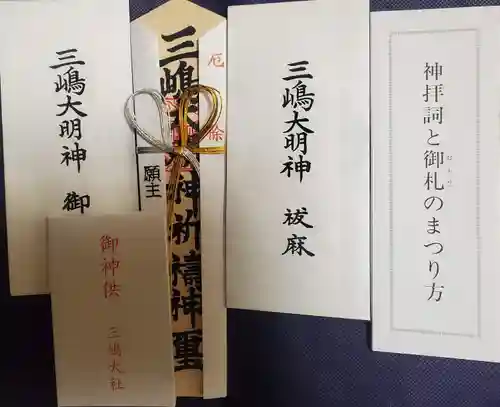 神拝詞と御札のまつり方
みふだ
三嶋大明神 祓麻
厄除
三嶋大明神祈禱神璽
願主
三嶋大明神 御
御神供 三嶋大社